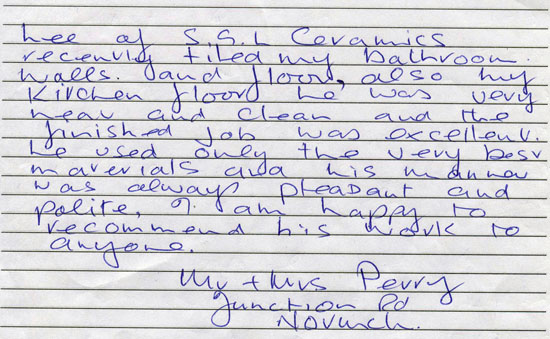 Lee of S.G.L Ceramics
recently tiled my bathroom
walls. and floor, also my
Kitchen floor, he was very
neat and clean and the
finished job was excellent.
he used only the very best
materials and his manner
was always pleasant and
polite, I am happy to
recommend his work to
anyone.
Mr + Mrs Perry
Junction Rd
Norwich.